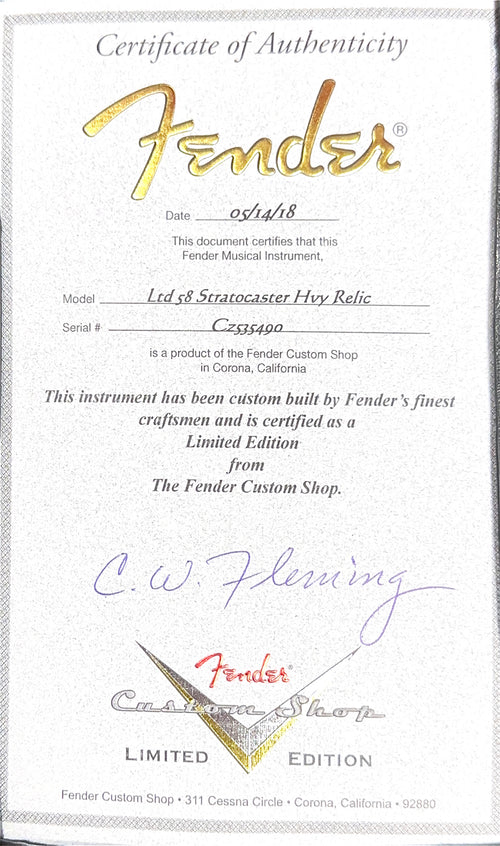 Certificate of Authenticity
Fender®
Date 05/14/18
This document certifies that this
Fender Musical Instrument,
Model Ltd 58 Stratocaster Hvy Relic
Serial # Cz535490
is a product of the Fender Custom Shop
in Corona, California
This instrument has been custom built by Fender's finest
craftsmen and is certified as a
Limited Edition
from
The Fender Custom Shop.
C. W. Fleming
Fender®
Custom Shop
LIMITED EDITION
Fender Custom Shop • 311 Cessna Circle • Corona, California • 92880